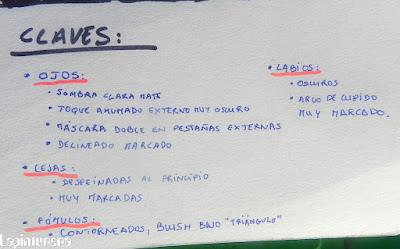 CLAVES:
• OJOS:
• SOMBRA CLARA MATE
• TOQUE AHUMADO EXTERNO MUY OSCURO
• MÁSCARA DOBLE EN PESTAÑAS EXTERNAS
• DELINEADO MARCADO
• CEJAS:
• DESPEINADAS AL PRINCIPIO
• MUY MARCADAS
• PÓMULOS:
• CONTORNEADOS, BLUSH BAJO "TRIÁNGULO"
• LABIOS:
• OSCUROS
• ARCO DE CUPIDO
MUY MARCADO.